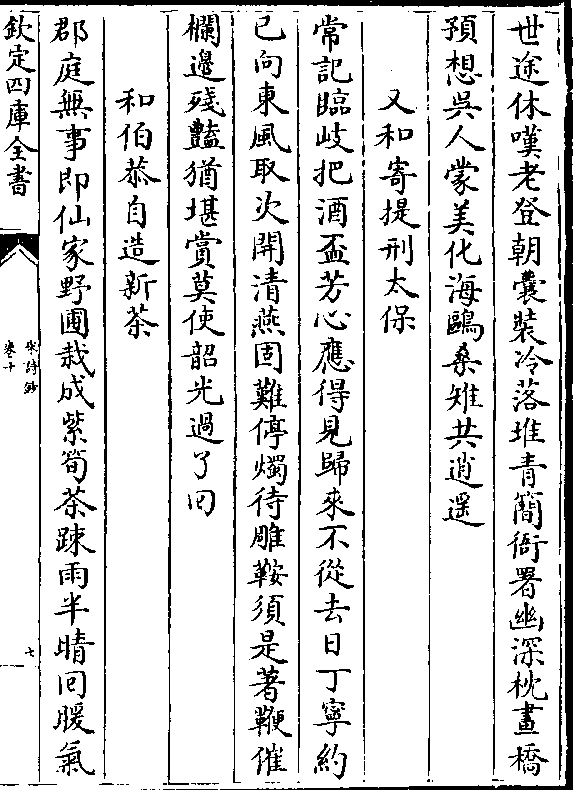 世途休嘆老登朝囊裝冷落堆青簡衙署幽深枕畫橋
預想吳人蒙美化海鷗桑雉共逍遥
又和寄提刑太保
常記臨岐把酒盃芳心應得見歸來不從去日丁寧約
已向東風取次開清燕固難停燭待雕鞍須是著鞭催
欄邉殘豔猶堪賞莫使韶光過了囘
和伯恭自造新茶
郡庭無事即仙家野圃栽成紫筍茶踈雨半晴囘暖氣
欽定四庫全書
宋詩鈔
卷十
七